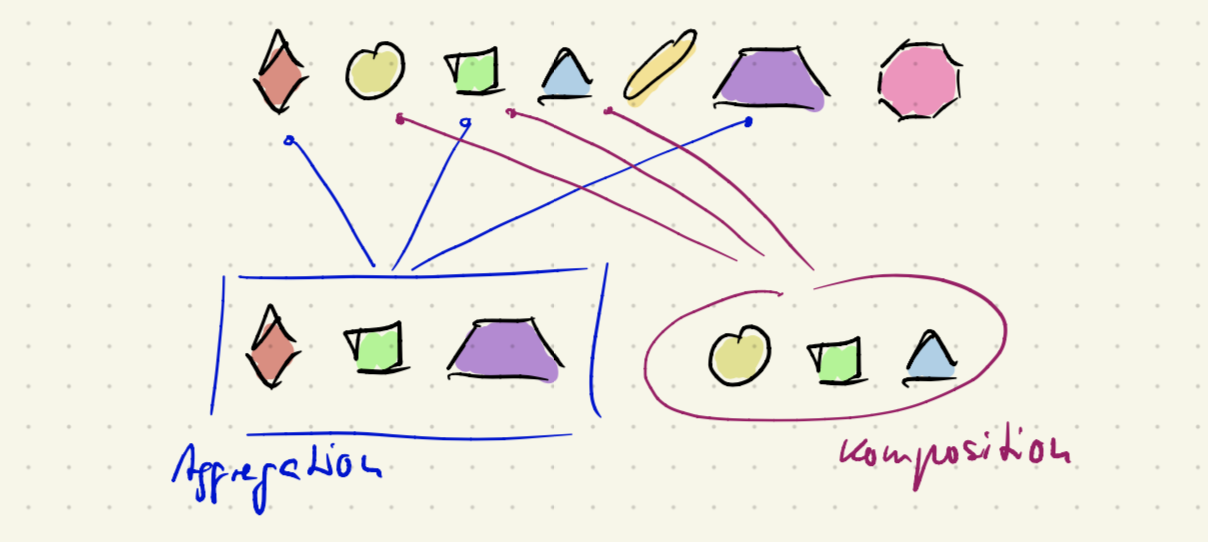 Aggregation
Komposition